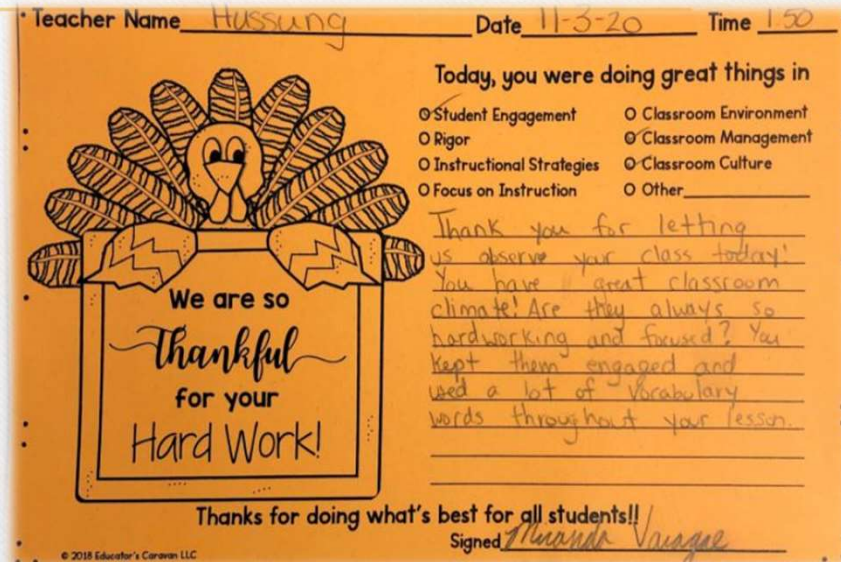 Teacher Name Hussung Date 11-3-20 Time 1:50
Today, you were doing great things in
Student Engagement
Rigor
Instructional Strategies
Focus on Instruction
Classroom Environment
Classroom Management
Classroom Culture
Other
Thank you for letting
us observe your class today!
You have great classroom
climate! Are they always so
hardworking and focused? You
kept them engaged and
used a lot of vocabulary
words throughout your lesson.
We are so
Thankful
for your
Hard Work!
Thanks for doing what's best for all students!!
Signed
© 2018 Educator's Caravan LLC